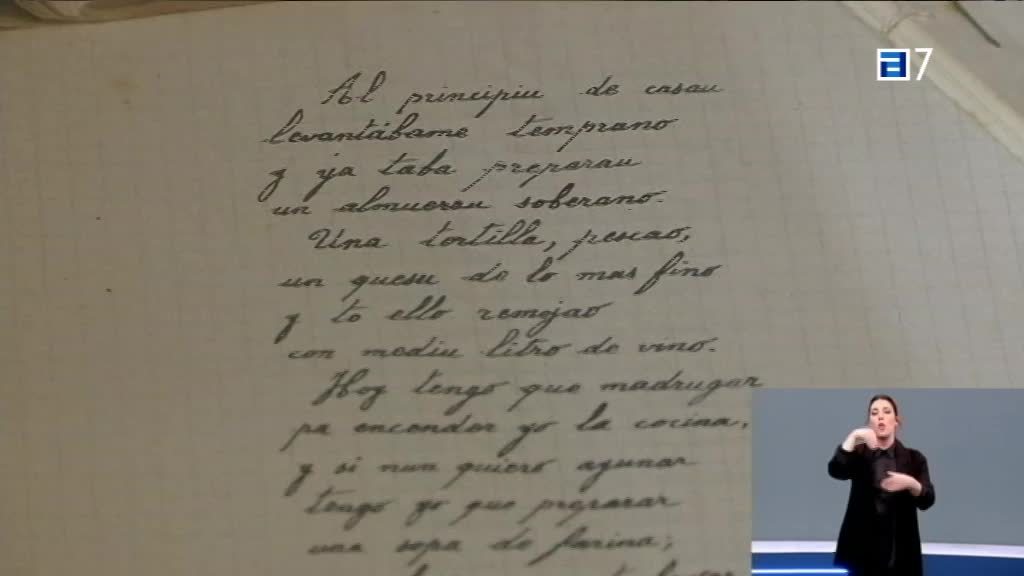 7
Al principiu de casau
levantábame temprano
y ya taba preparau
un almuersu soberano.
Una tortilla, pescao,
un quesu de lo mas fino
y to ello remojao
con mediu litro de vino.
Hoy tengo que madrugar
pa encender yo la cocina,
y si nun quiero ayunar
tengo yo que preparar
una sopa de farina;